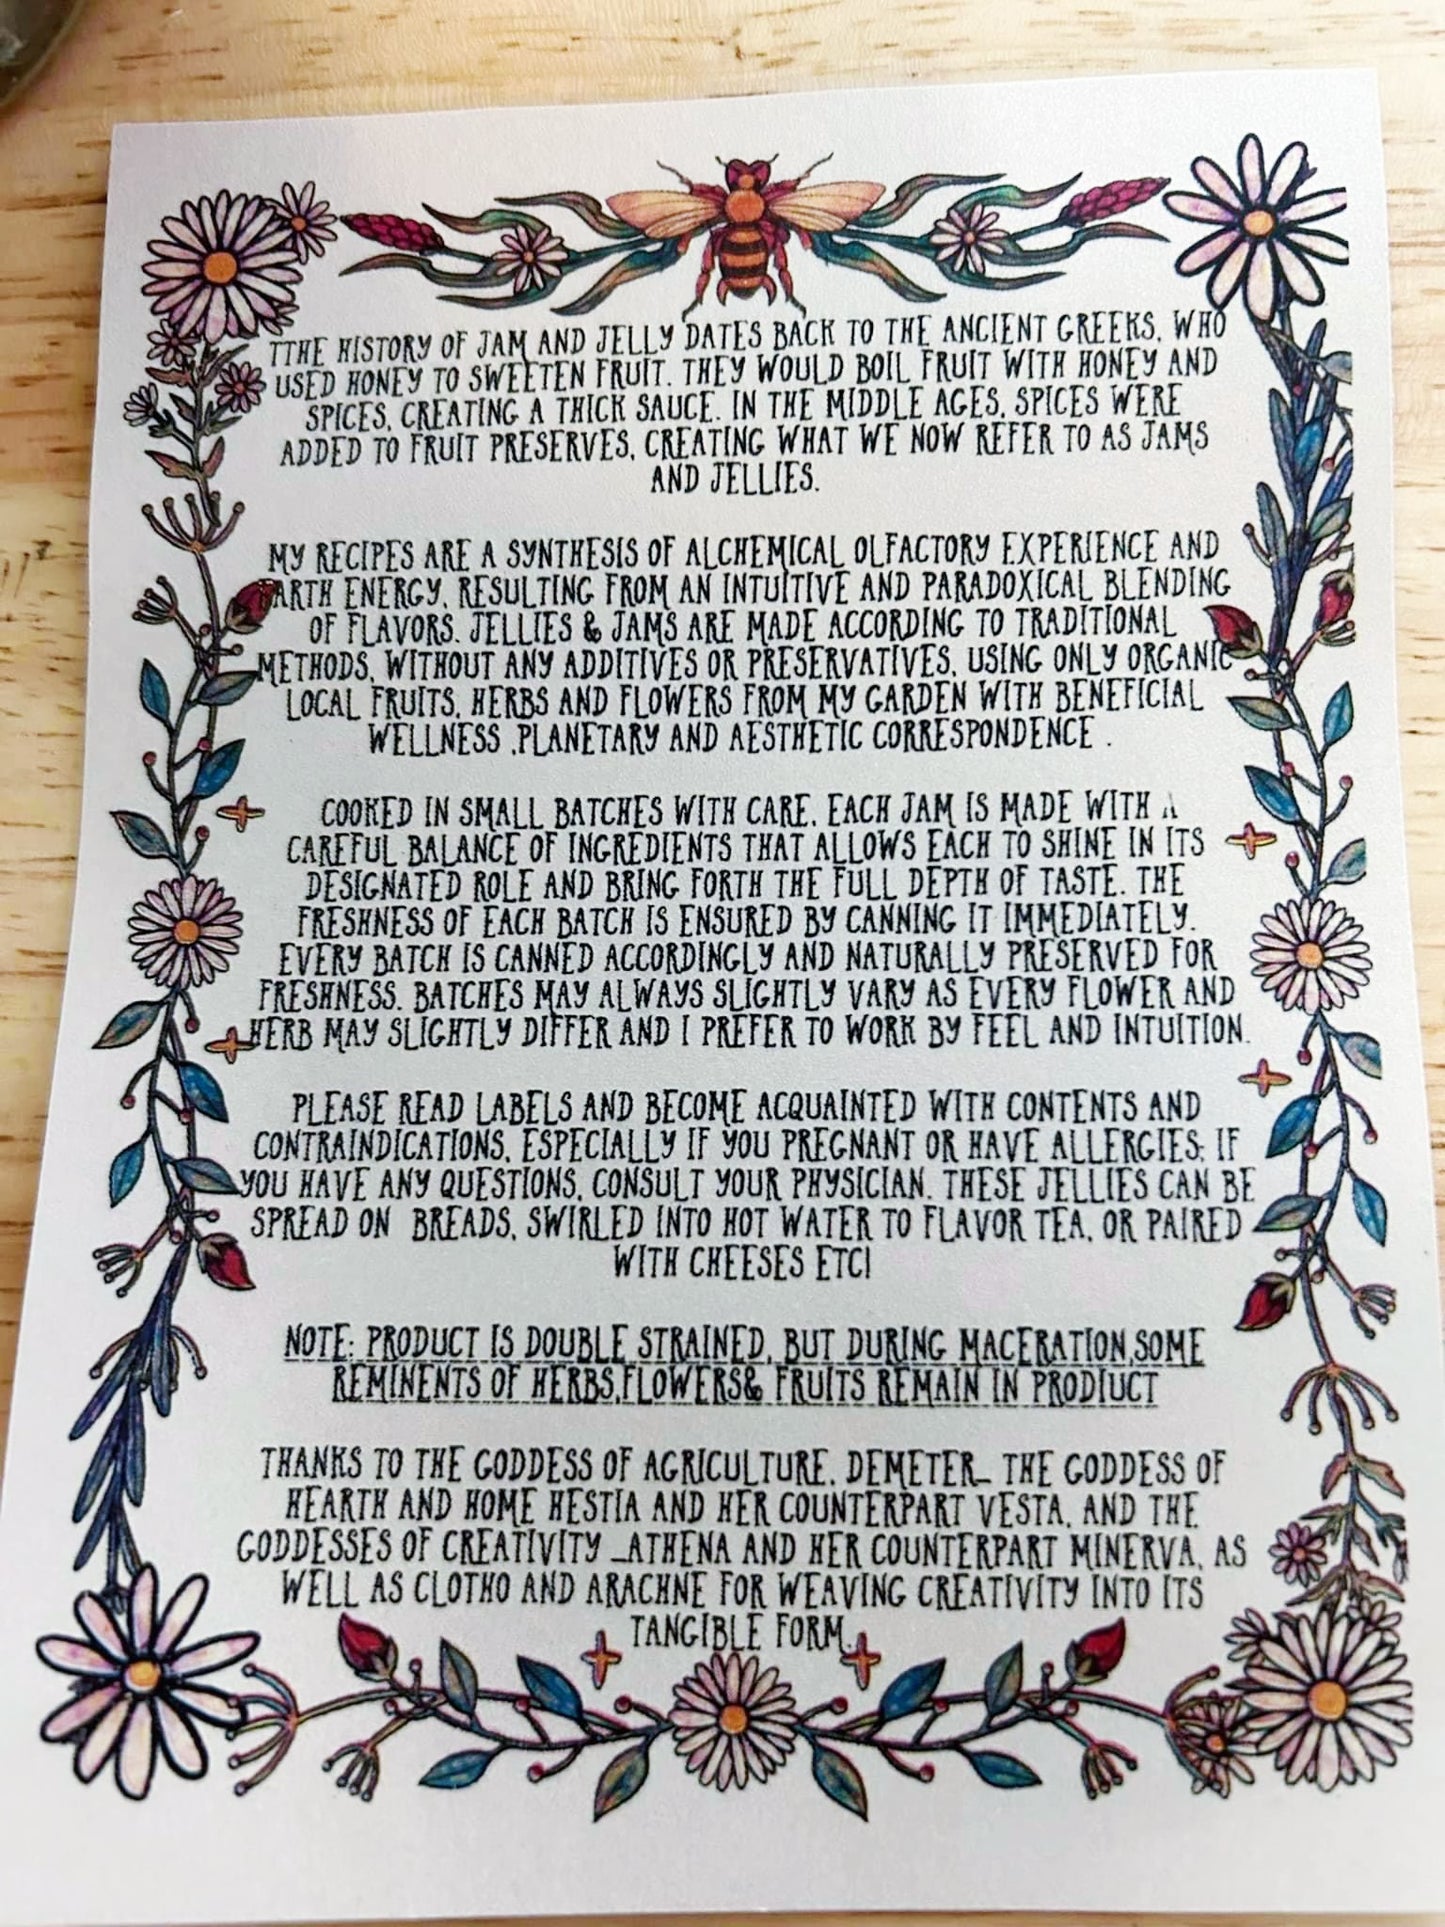 TTHE HISTORY OF JAM AND JELLY DATES BACK TO THE ANCIENT GREEKS, WHO
USED HONEY TO SWEETEN FRUIT. THEY WOULD BOIL FRUIT WITH HONEY AND
SPICES, CREATING A THICK SAUCE. IN THE MIDDLE AGES, SPICES WERE
ADDED TO FRUIT PRESERVES, CREATING WHAT WE NOW REFER TO AS JAMS
AND JELLIES.
MY RECIPES ARE A SYNTHESIS OF ALCHEMICAL OLFACTORY EXPERIENCE AND
EARTH ENERGY, RESULTING FROM AN INTUITIVE AND PARADOXICAL BLENDING
OF FLAVORS. JELLIES & JAMS ARE MADE ACCORDING TO TRADITIONAL
METHODS, WITHOUT ANY ADDITIVES OR PRESERVATIVES, USING ONLY ORGANIC
LOCAL FRUITS, HERBS AND FLOWERS FROM MY GARDEN WITH BENEFICIAL
WELLNESS ,PLANETARY AND AESTHETIC CORRESPONDENCE .
COOKED IN SMALL BATCHES WITH CARE, EACH JAM IS MADE WITH A
CAREFUL BALANCE OF INGREDIENTS THAT ALLOWS EACH TO SHINE IN ITS
DESIGNATED ROLE AND BRING FORTH THE FULL DEPTH OF TASTE. THE
FRESHNESS OF EACH BATCH IS ENSURED BY CANNING IT IMMEDIATELY.
EVERY BATCH IS CANNED ACCORDINGLY AND NATURALLY PRESERVED FOR
FRESHNESS. BATCHES MAY ALWAYS SLIGHTLY VARY AS EVERY FLOWER AND
HERB MAY SLIGHTLY DIFFER AND I PREFER TO WORK BY FEEL AND INTUITION.
PLEASE READ LABELS AND BECOME ACQUAINTED WITH CONTENTS AND
CONTRAINDICATIONS, ESPECIALLY IF YOU PREGNANT OR HAVE ALLERGIES; IF
YOU HAVE ANY QUESTIONS, CONSULT YOUR PHYSICIAN. THESE JELLIES CAN BE
SPREAD ON BREADS, SWIRLED INTO HOT WATER TO FLAVOR TEA, OR PAIRED
WITH CHEESES ETC!
NOTE: PRODUCT IS DOUBLE STRAINED, BUT DURING MACERATION,SOME
REMINENTS OF HERBS,FLOWERS& FRUITS REMAIN IN PRODIUCT
THANKS TO THE GODDESS OF AGRICULTURE, DEMETER_ THE GODDESS OF
HEARTH AND HOME HESTIA AND HER COUNTERPART VESTA, AND THE
GODDESSES OF CREATIVITY _ATHENA AND HER COUNTERPART MINERVA, AS
WELL AS CLOTHO AND ARACHNE FOR WEAVING CREATIVITY INTO ITS
TANGIBLE FORM.